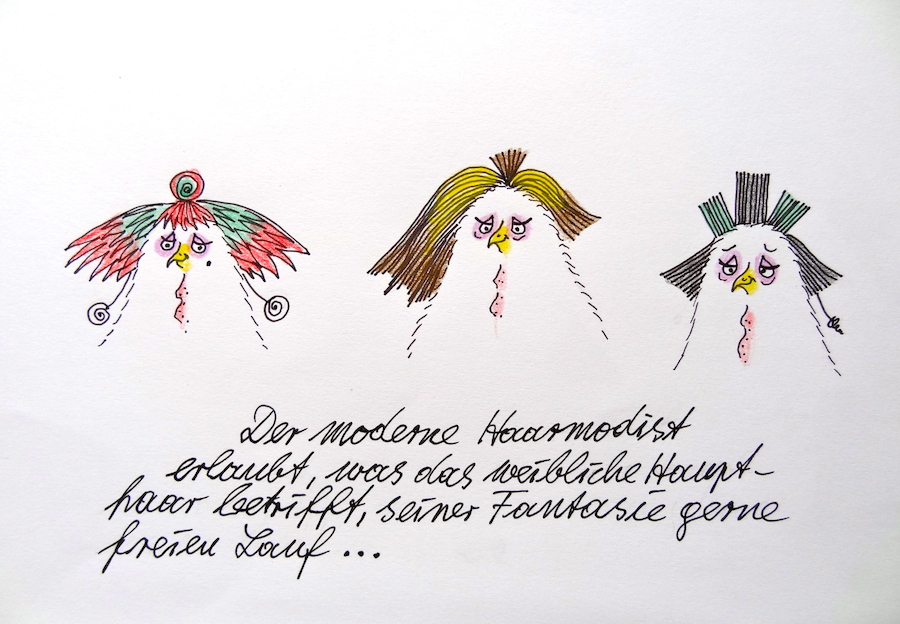 Der moderne Haarmodist
erlaubt, was das weibliche Haupt-
haar betrifft, seiner Fantasie gerne
freien Lauf ...